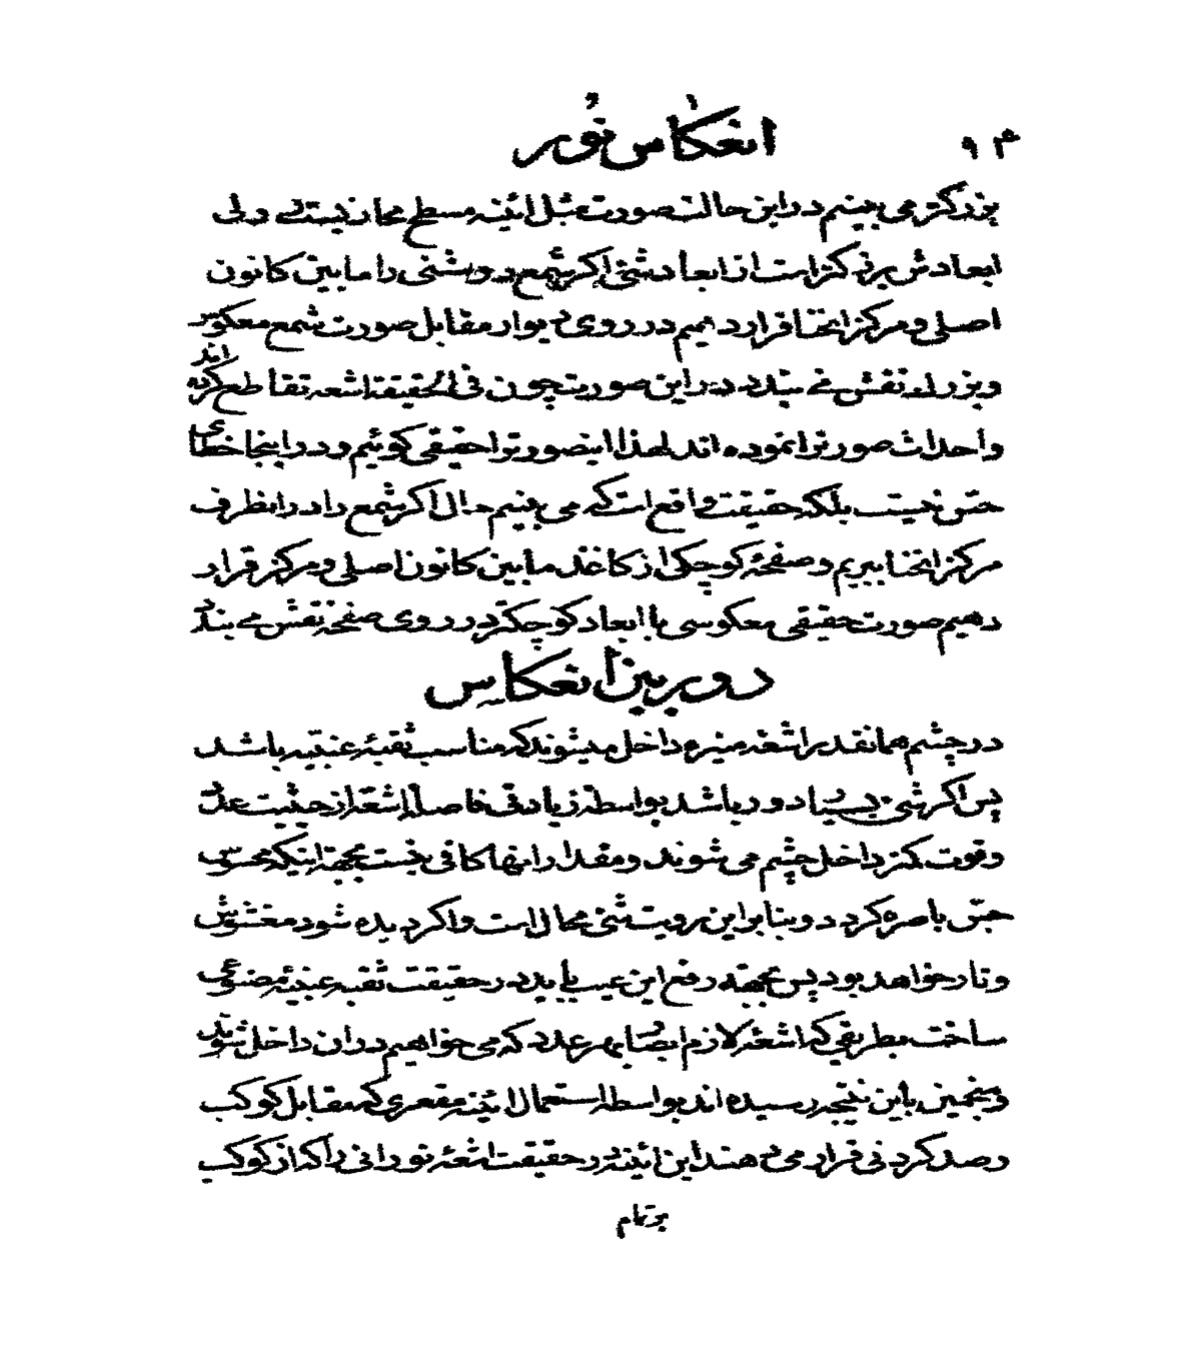 ۹۴ انعکاس نور
بزرگتر می بینیم در این حالت صورت مثل ائینه مسطح مجازیست ولی
ابعادش بزرگتر است از ابعاد شئی اگر شمع روشنی را مابین کانون
اصلی و مرکز انحنا قرار دهیم در روی دیوار مقابل صورت شمع معکوس
و بزرگ نقش می بندد در این صورت چون فی الحقیقة اشعه تقاطع کرده اند
و احداث صورت را نموده اند لهذا اینصورترا حقیقی گوئیم و در اینجا خطای
حس نیست بلکه حقیقت واقع است که می بینیم حال اگر شمع را در انطرف
مرکز انحنا ببریم و صفحهٔ کوچکی از کاغذ مابین کانون اصلی و مرکز قرار
دهیم صورت حقیقی معکوسی با ابعاد کوچکتر در روی صفحه نقش می بندد
دوربین انعکاس
در چشم همانقدر اشعه منیره داخل میشوند که مناسب ثقبهٔ عنبیه باشد
پس اگر شئی بسیار دور باشد بواسطهٔ زیادتی فاصله اشعه از حیثیت عدد
و قوت کمتر داخل چشم می شوند و مقدار انها کافی نیست بجهة اینکه محسوس
حس باصره گردد و بنابراین رویت شئی محال است و اگر دیده شود مغشوش
و تار خواهد بود پس بجهة رفع این عیب باید در حقیقت ثقبه عنبیهٔ مصنوعی
ساخت بطریقی که اشعهٔ لازم ابصار بهر عدد که می خواهیم در ان داخل شوند
و منجمین باین نتیجه رسیده اند بواسطه استعمال ائینه مقعری که مقابل کوکب
رصد کردنی قرار می دهند این ائینه در حقیقت اشعهٔ نورانی را که از کوکب
بر تمام